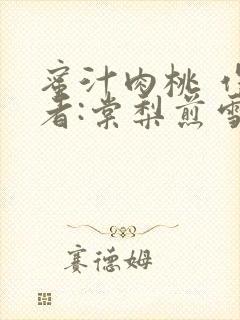 蜜汁肉桃
者:棠梨煎雪
赛德姆